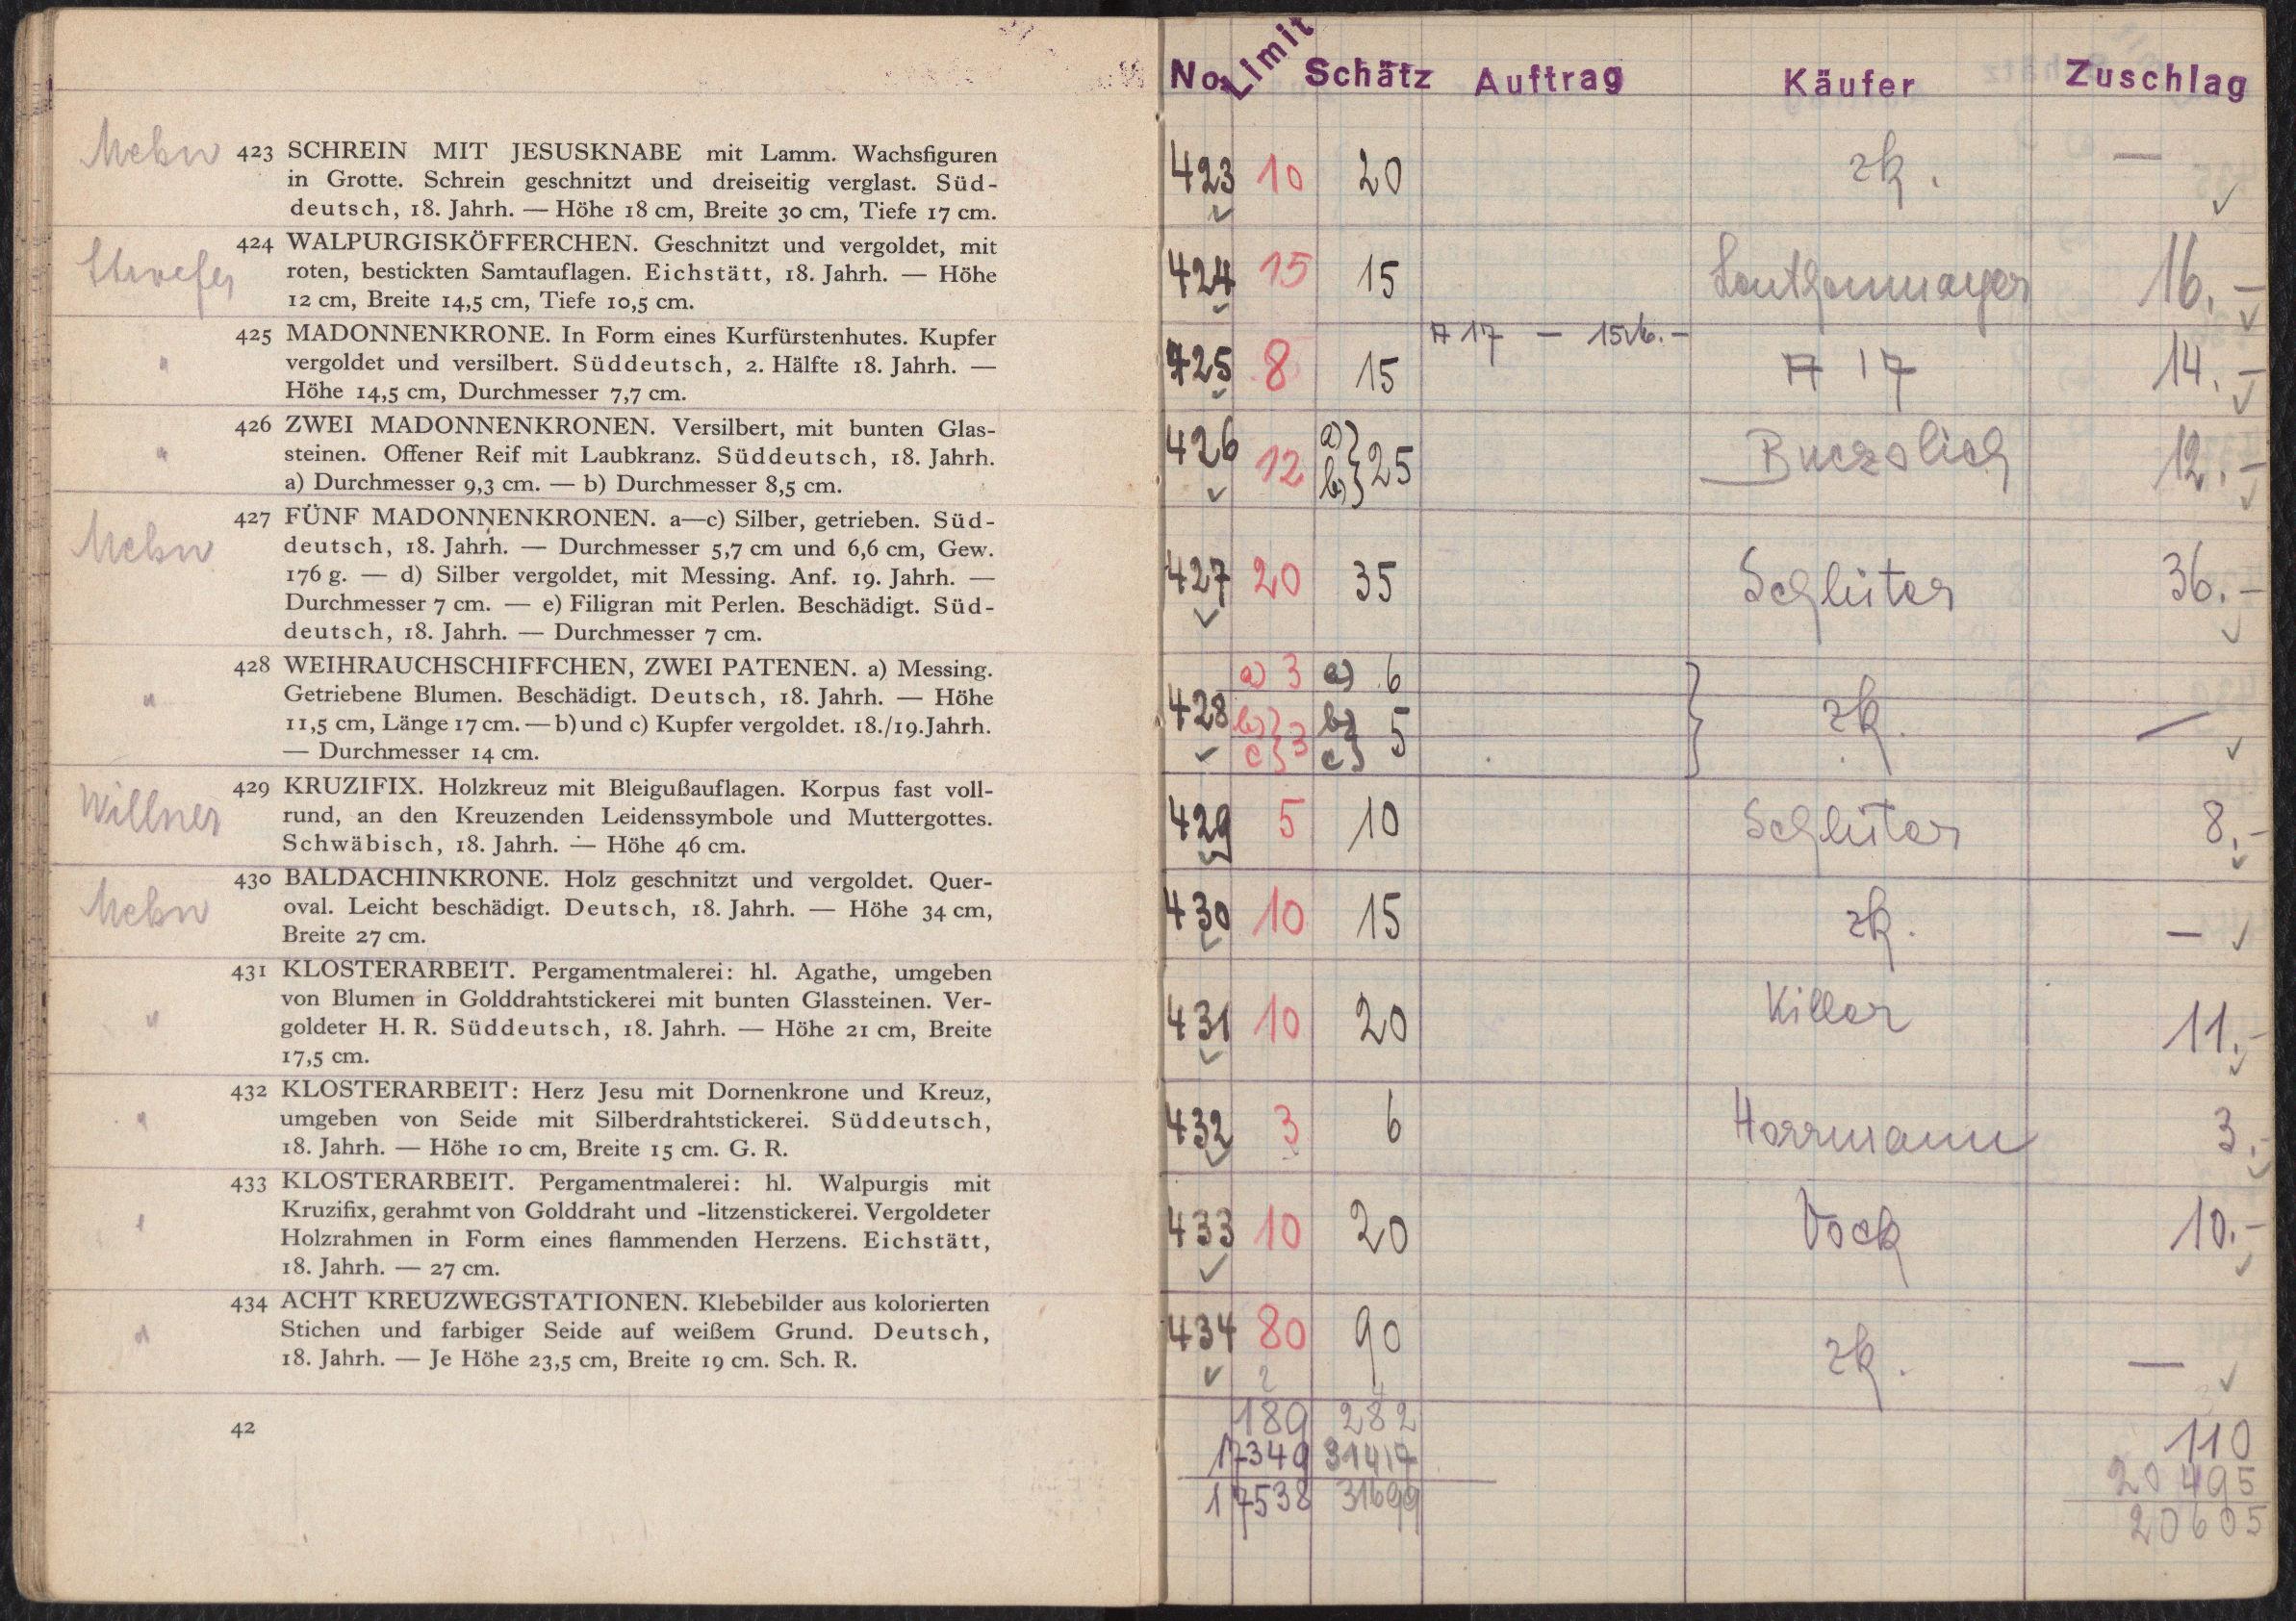 423 SCHREIN MIT JESUSKNABE mit Lamm. Wachsfiguren
in Grotte. Schrein geschnitzt und dreiseitig verglast. Süd-
deutsch, 18. Jahrh. — Höhe 18 cm, Breite 30 cm, Tiefe 17 cm.
424 WALPURGISKÖFFERCHEN. Geschnitzt und vergoldet, mit
roten, bestickten Samtauflagen. Eichstätt, 18. Jahrh. — Höhe
12 cm, Breite 14,5 cm, Tiefe 10,5 cm.
425 MADONNENKRONE. In Form eines Kurfürstenhutes. Kupfer
vergoldet und versilbert. Süddeutsch, 2. Hälfte 18. Jahrh. —
Höhe 14,5 cm, Durchmesser 7,7 cm.
426 ZWEI MADONNENKRONEN. Versilbert, mit bunten Glas-
steinen. Offener Reif mit Laubkranz. Süddeutsch, 18. Jahrh.
a) Durchmesser 9,3 cm. — b) Durchmesser 8,5 cm.
427 FÜNF MADONNENKRONEN. a—c) Silber, getrieben. Süd-
deutsch, 18. Jahrh. — Durchmesser 5,7 cm und 6,6 cm, Gew.
176 g. — d) Silber vergoldet, mit Messing. Anf. 19. Jahrh. —
Durchmesser 7 cm. — e) Filigran mit Perlen. Beschädigt. Süd-
deutsch, 18. Jahrh. — Durchmesser 7 cm.
428 WEIHRAUCHSCHIFFCHEN, ZWEI PATENEN. a) Messing.
Getriebene Blumen. Beschädigt. Deutsch, 18. Jahrh. — Höhe
11,5 cm, Länge 17 cm. — b) und c) Kupfer vergoldet. 18./19. Jahrh.
— Durchmesser 14 cm.
Willner 429 KRUZIFIX. Holzkreuz mit Bleigußauflagen. Korpus fast voll-
rund, an den Kreuzenden Leidenssymbole und Muttergottes.
Schwäbisch, 18. Jahrh. — Höhe 46 cm.
430 BALDACHINKRONE. Holz geschnitzt und vergoldet. Quer-
oval. Leicht beschädigt. Deutsch, 18. Jahrh. — Höhe 34 cm,
Breite 27 cm.
431 KLOSTERARBEIT. Pergamentmalerei: hl. Agathe, umgeben
von Blumen in Golddrahtstickerei mit bunten Glassteinen. Ver-
goldeter H. R. Süddeutsch, 18. Jahrh. — Höhe 21 cm, Breite
17,5 cm.
432 KLOSTERARBEIT: Herz Jesu mit Dornenkrone und Kreuz,
umgeben von Seide mit Silberdrahtstickerei. Süddeutsch,
18. Jahrh. — Höhe 10 cm, Breite 15 cm. G. R.
433 KLOSTERARBEIT. Pergamentmalerei: hl. Walpurgis mit
Kruzifix, gerahmt von Golddraht und -litzenstickerei. Vergoldeter
Holzrahmen in Form eines flammenden Herzens. Eichstätt,
18. Jahrh. — 27 cm.
434 ACHT KREUZWEGSTATIONEN. Klebebilder aus kolorierten
Stichen und farbiger Seide auf weißem Grund. Deutsch,
18. Jahrh. — Je Höhe 23,5 cm, Breite 19 cm. Sch. R.
42
No. Limit Schätz Auftrag Käufer Zuschlag
423 10 20 zk. —
424 15 15 16.—
425 8 15 A 17 — 15 A 17 14.—
426 12 a) b) 25 12.—
427 20 35 Schlüter 36.—
428 a) 3 a) 6
b) c) 3 b) c) 5 zk. —
429 5 10 Schlüter 8.—
430 10 15 zk. —
431 10 20 Killer 11.—
432 3 6 Herrmann 3.—
433 10 20 Vock 10.—
434 80 90 zk. —
189 282 110
17349 31417 20495
17538 31699 20605